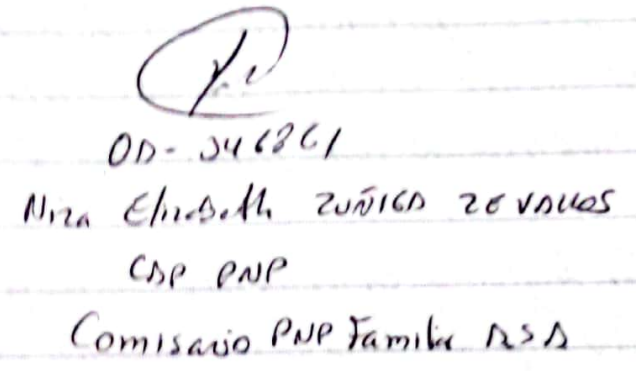 OA- 346861
Niza Elizabeth ZUÑIGA ZEVALLOS
CAP PNP
Comisario PNP Familia ASA